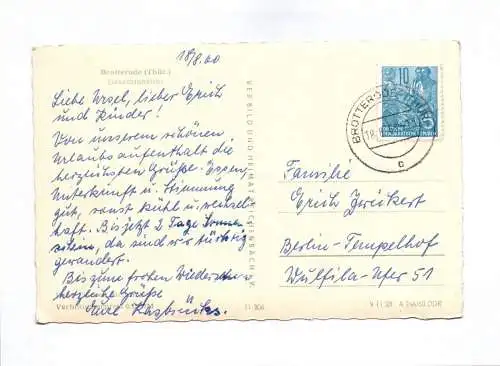 18/8.60
Brotterode (Thür.)
Gesamtansicht
Liebe Ursel, lieber Erich
und Kinder!
Von unserem schönen
Urlaubsaufenthalt die
herzlichsten Grüße. Essen,
Unterkunft u. Stimmung
gut, sonst kühl u. wechsel-
haft. Bis jetzt 2 Tage Sonnen-
schein, da sind wir tüchtig
gewandert.
Bis zum frohen Wiedersehen
herzliche Grüße
Eure
VERLAG BILD UND HEIMAT REICHENBACH I.V.
10
DEUTSCHE
DEMOKRATISCHE REPUBLIK
BROTTERODE
c
Familie
Erich
Berlin-Tempelhof
Wulfila-Ufer 51
11 306
V 11 28 A 244/60 DDR